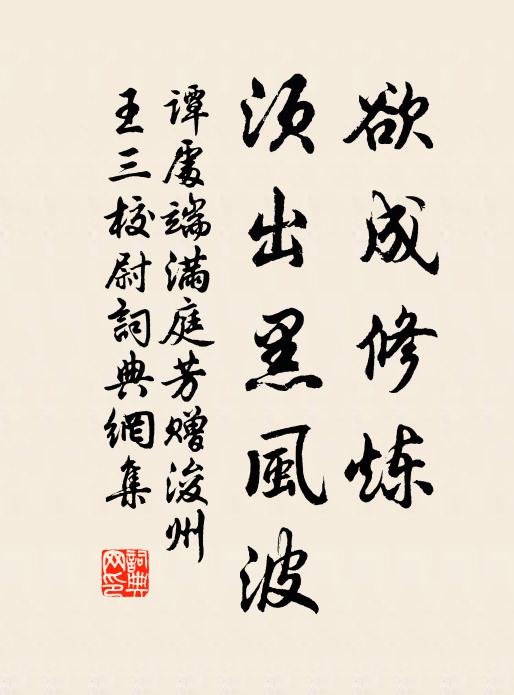 欲成修炼
须出黑風波
谭處端满庭芳赠浚州
王三校尉詞典網集
詞典网印